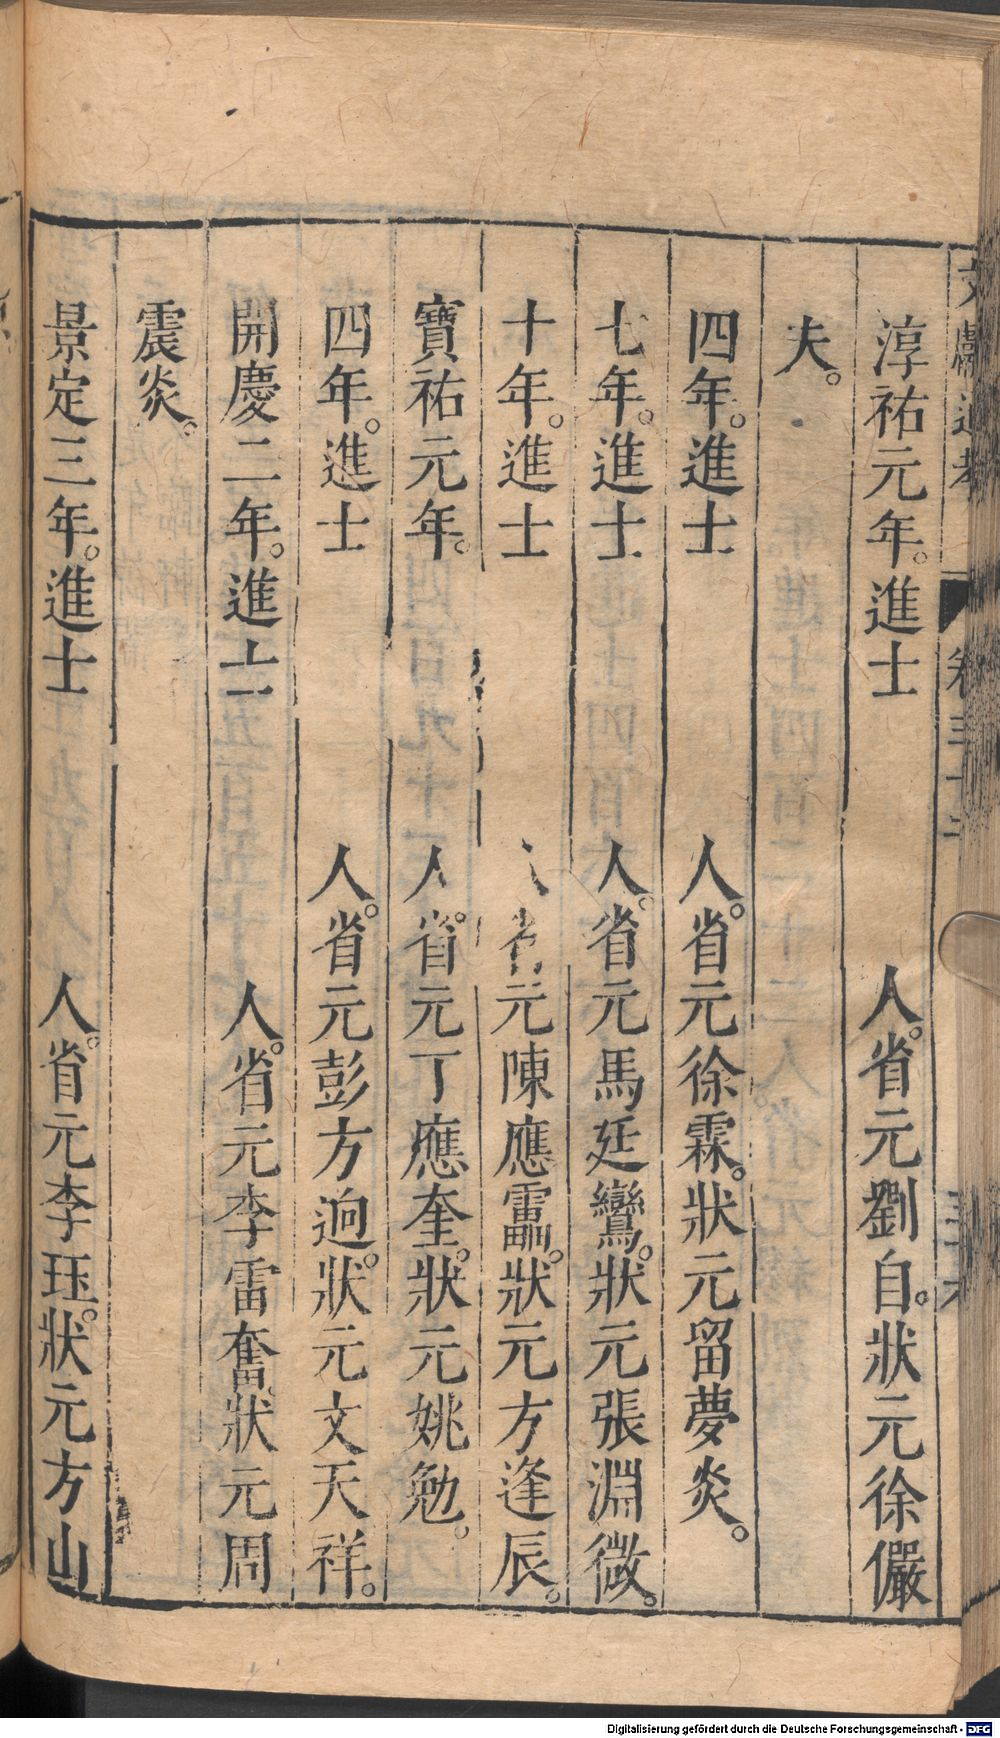 文獻通考 卷三十二
淳祐元年。進士 人。省元劉自。狀元徐儼
夫。
四年。進士 人。省元徐霖。狀元留夢炎。
七年。進士 人。省元馬廷鸞。狀元張淵微。
十年。進士 省元陳應雷。狀元方逢辰。
寶祐元年。 人。省元丁應奎。狀元姚勉。
四年。進士 人。省元彭方逈。狀元文天祥。
開慶二年。進士 人。省元李雷奮。狀元周
震炎。
景定三年。進士 人。省元李珏。狀元方山
Digitalisierung gefördert durch die Deutsche Forschungsgemeinschaft - DFG